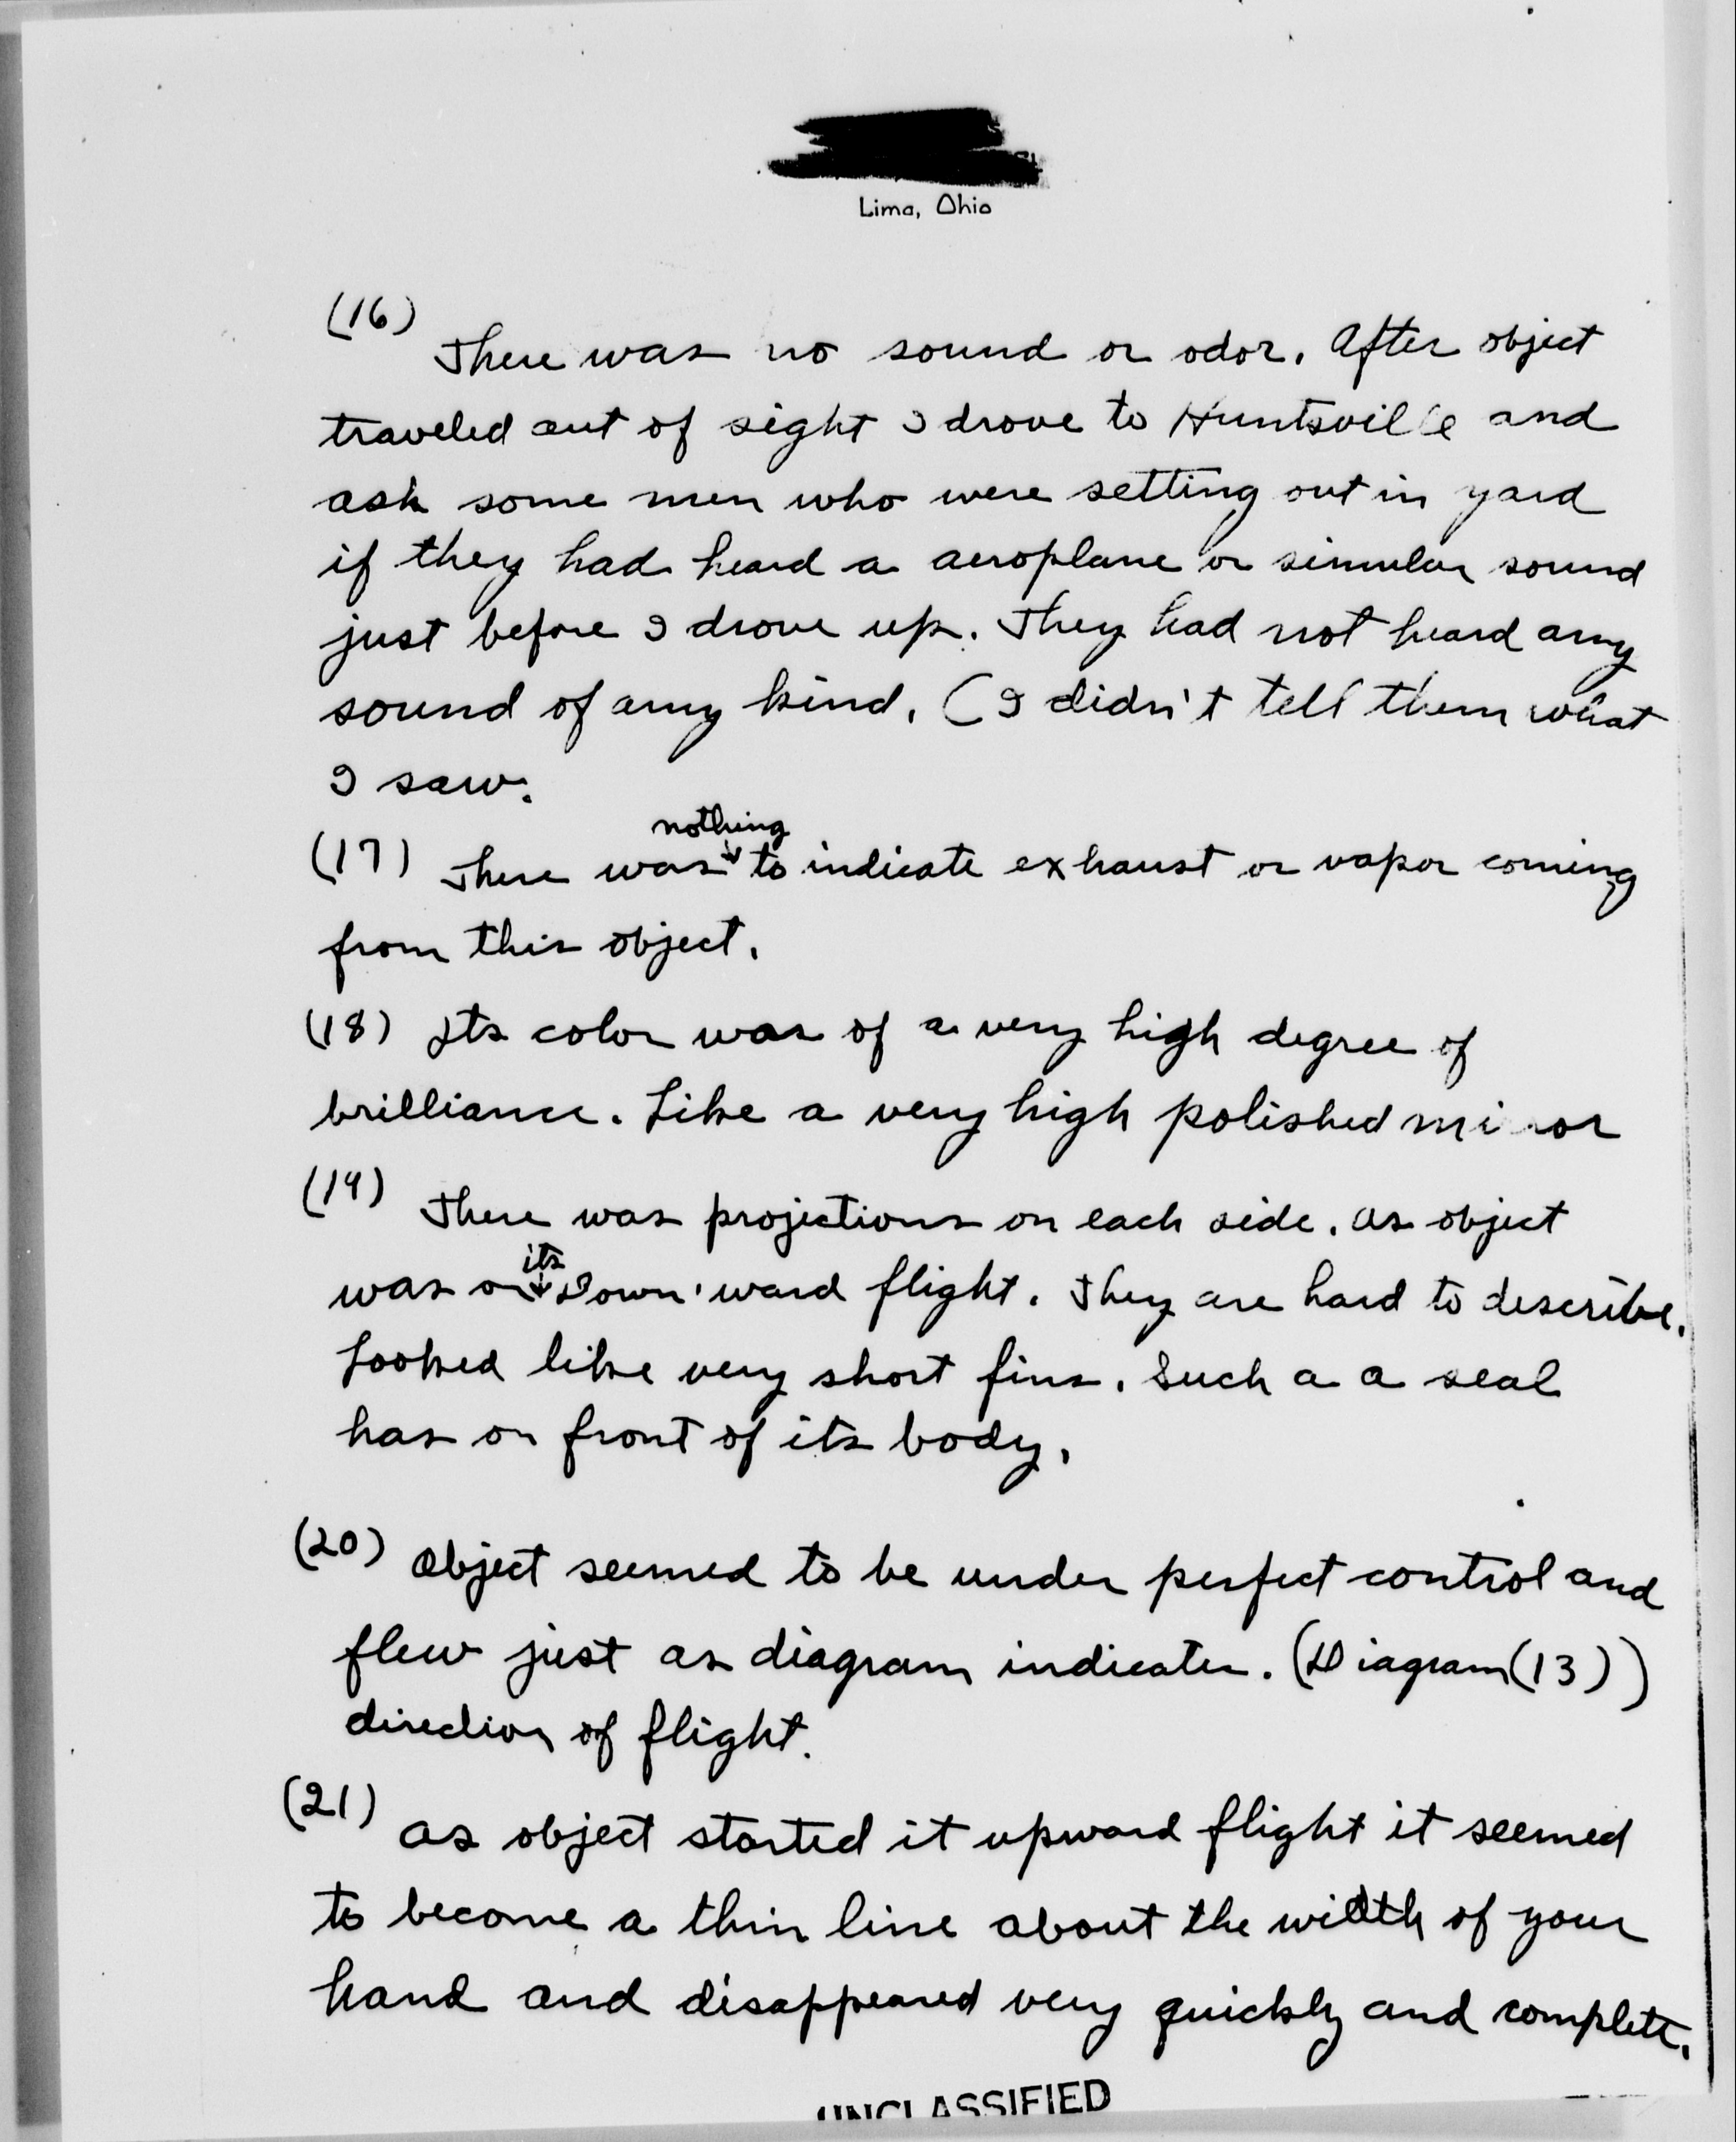 Lima, Ohio
(16)
There was no sound or odor. After object
traveled out of sight I drove to Huntsville and
ask some men who were setting out in yard
if they had heard a aeroplane or simular sound
just before I drove up. They had not heard any
sound of any kind. (I didn't tell them what
I saw.
nothing
(17) There was to indicate exhaust or vapor coming
from this object.
(18) Its color was of a very high degree of
brilliance. Like a very high polished mirror
(19) There was projections on each side. as object
its
was on Down'ward flight. They are hard to describe.
Looked like very short fins. Such a a seal
has on front of its body.
(20) Object seemed to be under perfect control and
flew just as diagram indicates. (Diagram (13))
direction of flight.
(21) as object started it upward flight it seemed
to become a thin line about the width of your
hand and disappeared very quickly and complete.
UNCLASSIFIED